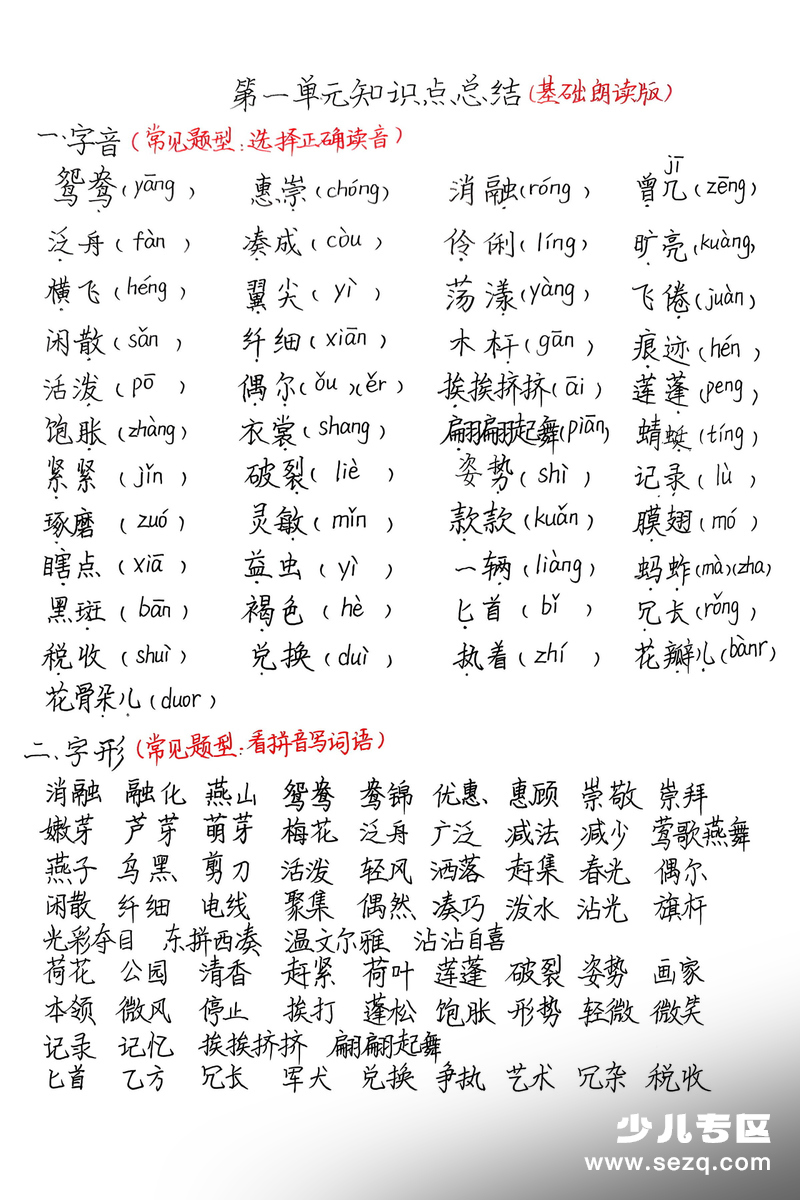 第一单元知识点总结(基础朗读版)
一.字音(常见题型:选择正确读音)
鸳鸯(yāng) 惠崇(chóng) 消融(róng) 曾几jī(zēng)
泛舟(fàn) 凑成(còu) 伶俐(líng) 旷亮(kuàng)
横飞(héng) 翼尖(yì) 荡漾(yàng) 飞倦(juàn)
闲散(sǎn) 纤细(xiān) 木杆(gān) 痕迹(hén)
活泼(pō) 偶尔(ǒu)(ěr) 挨挨挤挤(āi) 莲蓬(peng)
饱胀(zhàng) 衣裳(shang) 翩翩起舞(piān) 蜻蜓(tíng)
紧紧(jǐn) 破裂(liè) 姿势(shì) 记录(lù)
琢磨(zuó) 灵敏(mǐn) 款款(kuǎn) 膜翅(mó)
瞎点(xiā) 益虫(yì) 一辆(liàng) 蚂蚱(mà)(zha)
黑斑(bān) 褐色(hè) 匕首(bǐ) 冗长(rǒng)
税收(shuì) 兑换(duì) 执着(zhí) 花瓣儿(bànr)
花骨朵儿(duor)
二.字形(常见题型:看拼音写词语)
消融 融化 燕山 鸳鸯 鸯锦 优惠 惠顾 崇敬 崇拜
嫩芽 芦芽 萌芽 梅花 泛舟 广泛 减法 减少 莺歌燕舞
燕子 乌黑 剪刀 活泼 轻风 洒落 赶集 春光 偶尔
闲散 纤细 电线 聚集 偶然 凑巧 泼水 沾光 旗杆
光彩夺目 东拼西凑 温文尔雅 沾沾自喜
荷花 公园 清香 赶紧 荷叶 莲蓬 破裂 姿势 画家
本领 微风 停止 挨打 蓬松 饱胀 形势 轻微 微笑
记录 记忆 挨挨挤挤 翩翩起舞
匕首 乙方 冗长 军犬 兑换 争执 艺术 冗杂 税收
少儿专区
www.sezq.com